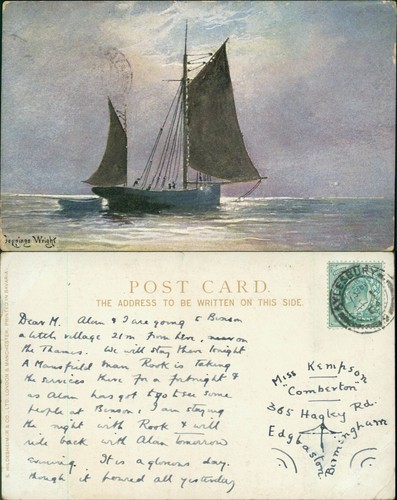 Wright
POST CARD.
THE ADDRESS TO BE WRITTEN ON THIS SIDE.
AYLESBURY
Dear M. Alan & I are going to Benson
a little village 21m from here, on
the Thames. We will stay there tonight
A Mansfield man Rook is taking
the services there for a fortnight &
as Alan has got to see some
people at Benson, I am staying
the night with Rook & will
ride back with Alan tomorrow
evening. It is a glorious day,
though it poured all yesterday
Miss Kempson
"Comberton"
365 Hagley Rd.
Edgbaston
Birmingham